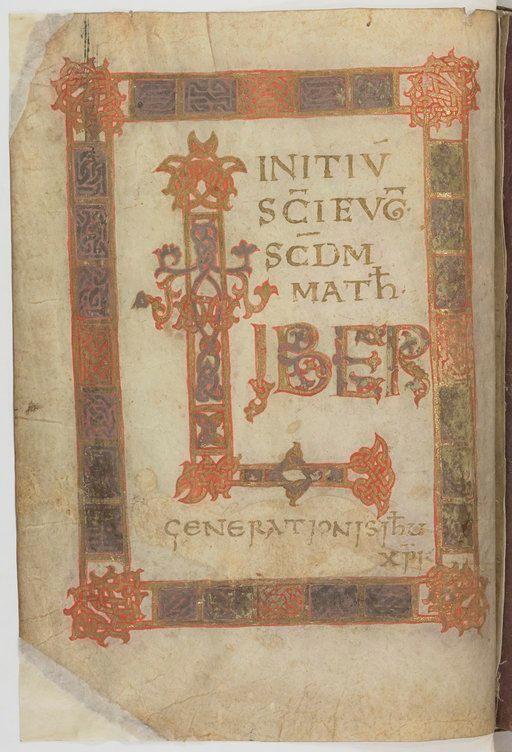 INITIŪ
SC̄I EVG̅
SC̄DM
MATħ·
LIBER
GENERATIONIS iħu
xp̅i·